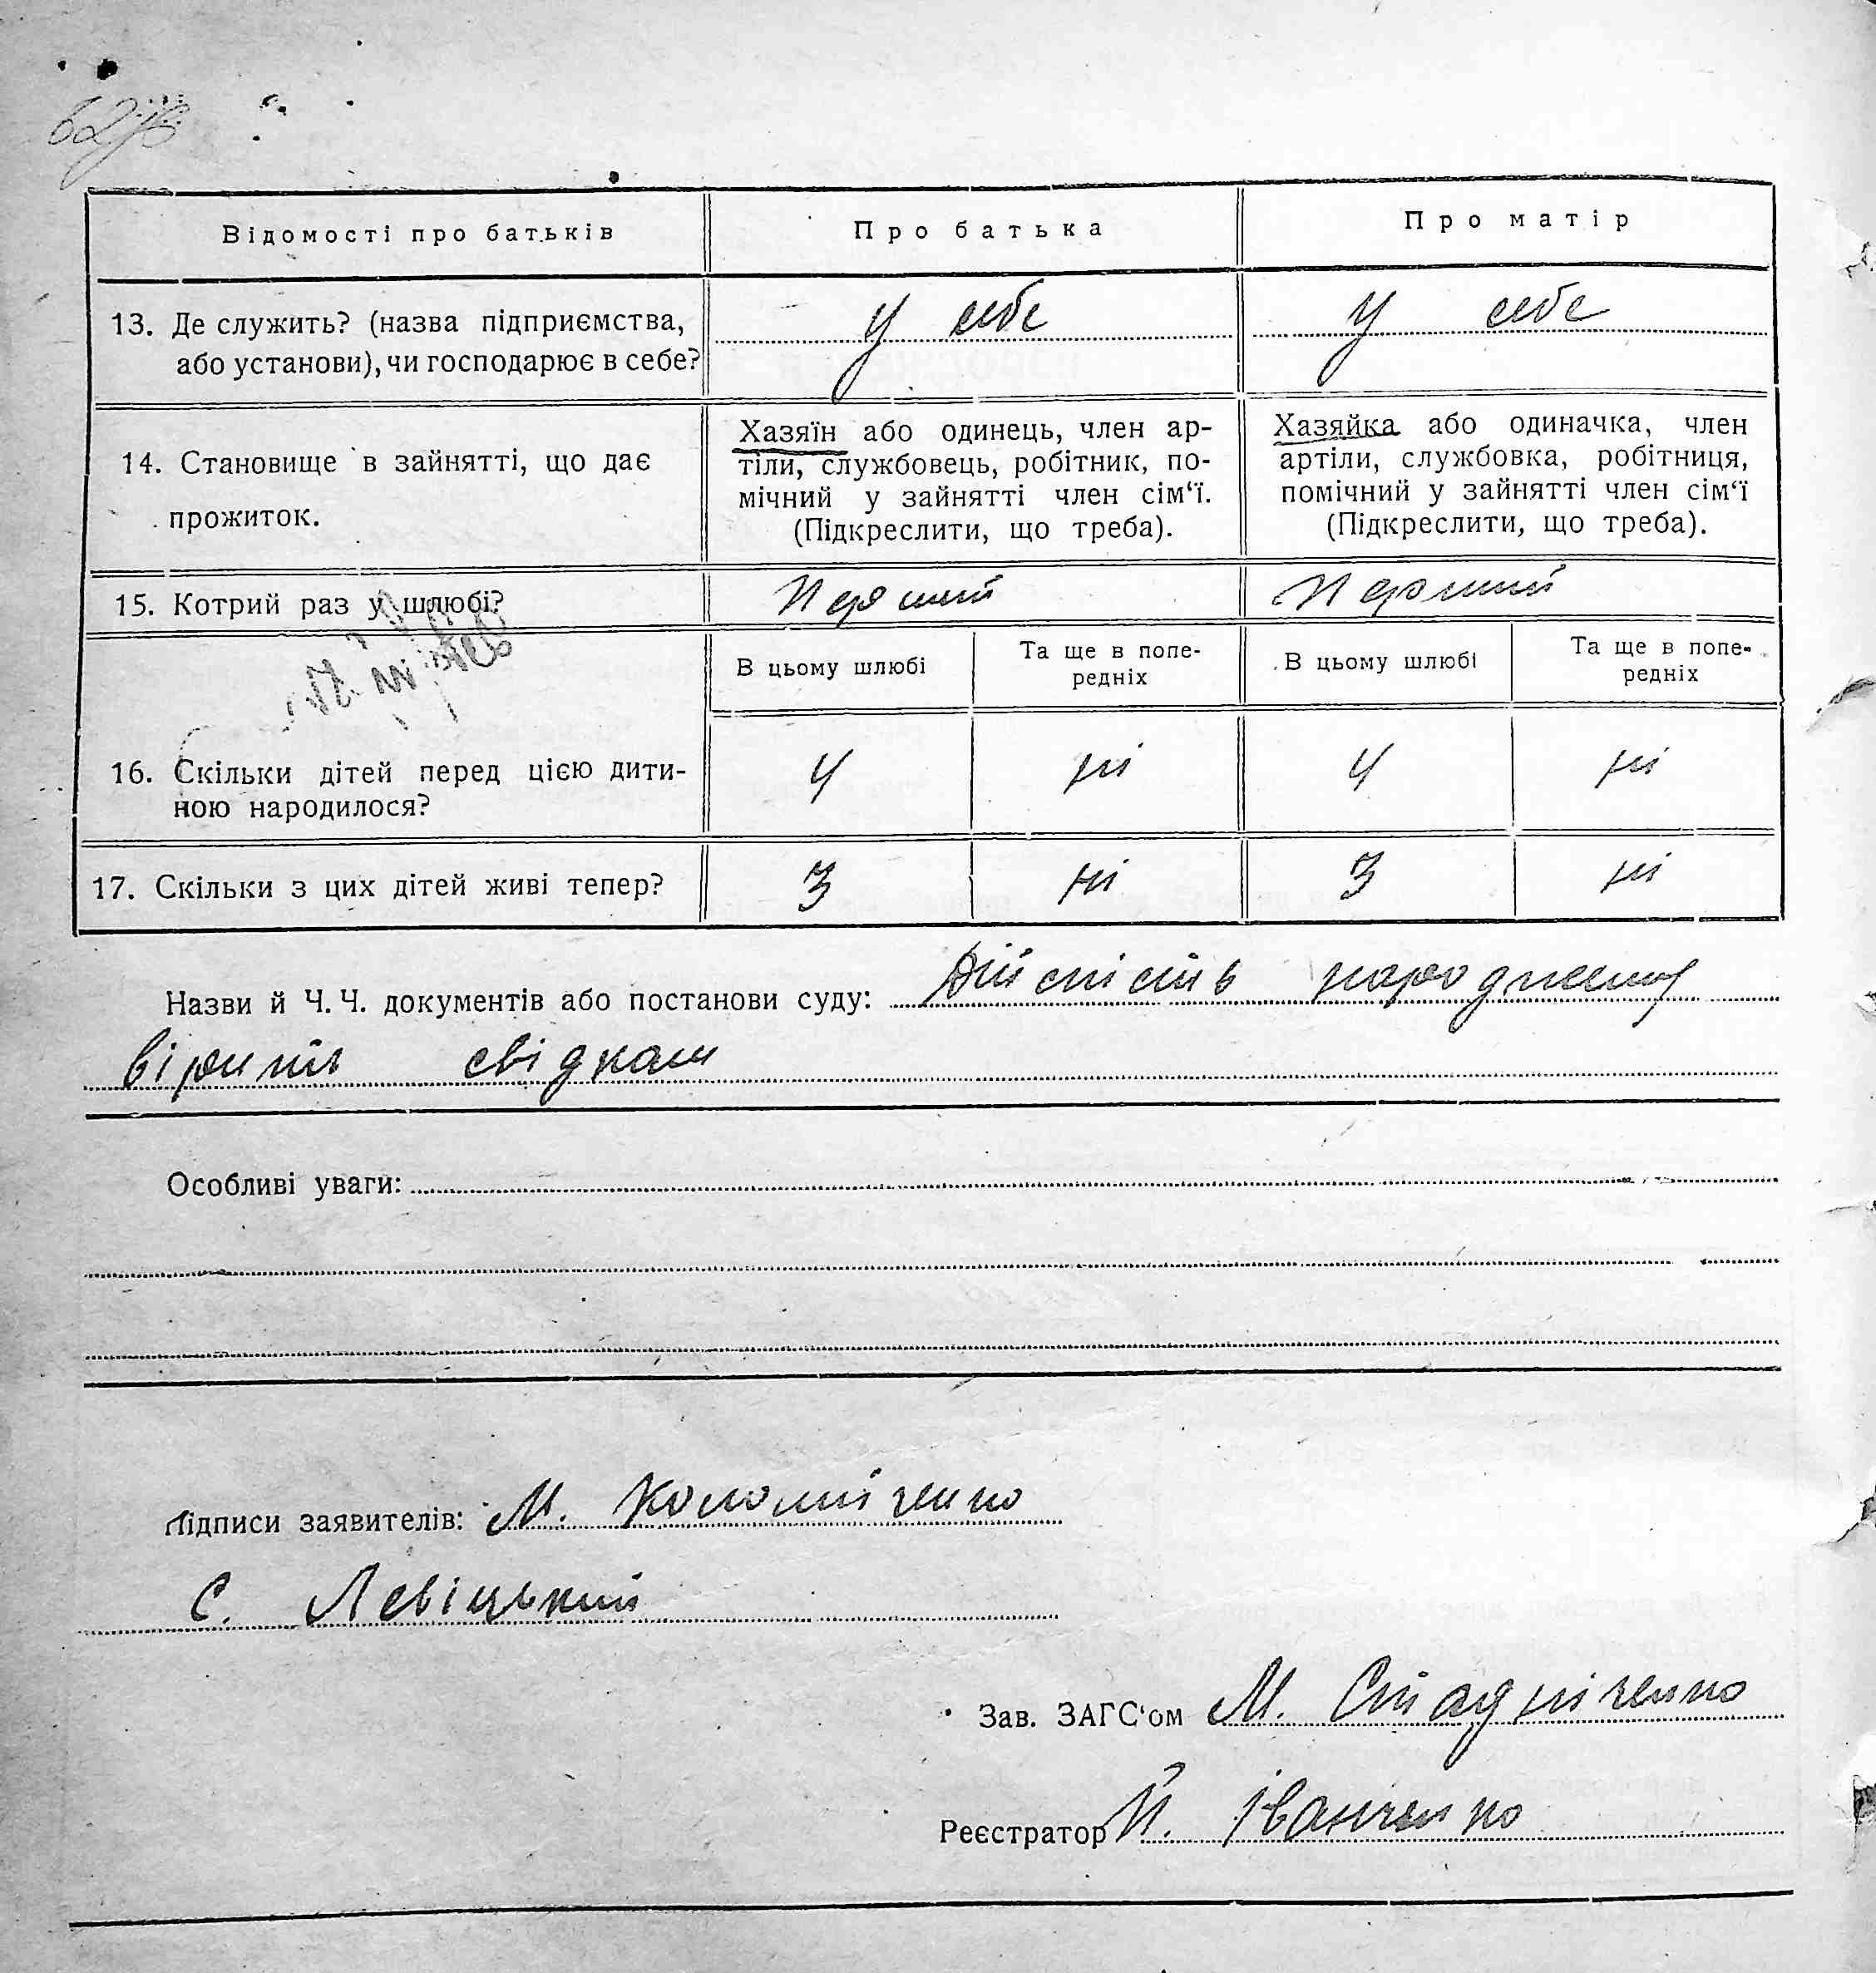 Відомості про батьків
Про батька
Про матір
13. Де служить? (назва підприємства,
або установи), чи господарює в себе?
У себе
У себе
14. Становище в зайнятті, що дає
прожиток.
Хазяїн або одинець, член ар-
тіли, службовець, робітник, по-
мічний у зайнятті член сім‘ї.
(Підкреслити, що треба).
Хазяйка або одиначка, член
артіли, службовка, робітниця,
помічний у зайнятті член сім‘ї
(Підкреслити, що треба).
15. Котрий раз у шлюбі?
Перший
Перший
В цьому шлюбі
Та ще в попе-
редніх
В цьому шлюбі
Та ще в попе-
редніх
16. Скільки дітей перед цією дити-
ною народилося?
4
ні
4
ні
17. Скільки з цих дітей живі тепер?
3
ні
3
ні
Назви й Ч. Ч. документів або постанови суду: Дійсність
свідкам
Особливі уваги:
Підписи заявителів: М. Коломійченко
С. Левіцький
Зав. ЗАГС‘ом М. Стадніченко
Реєстратор Й. Іванченко